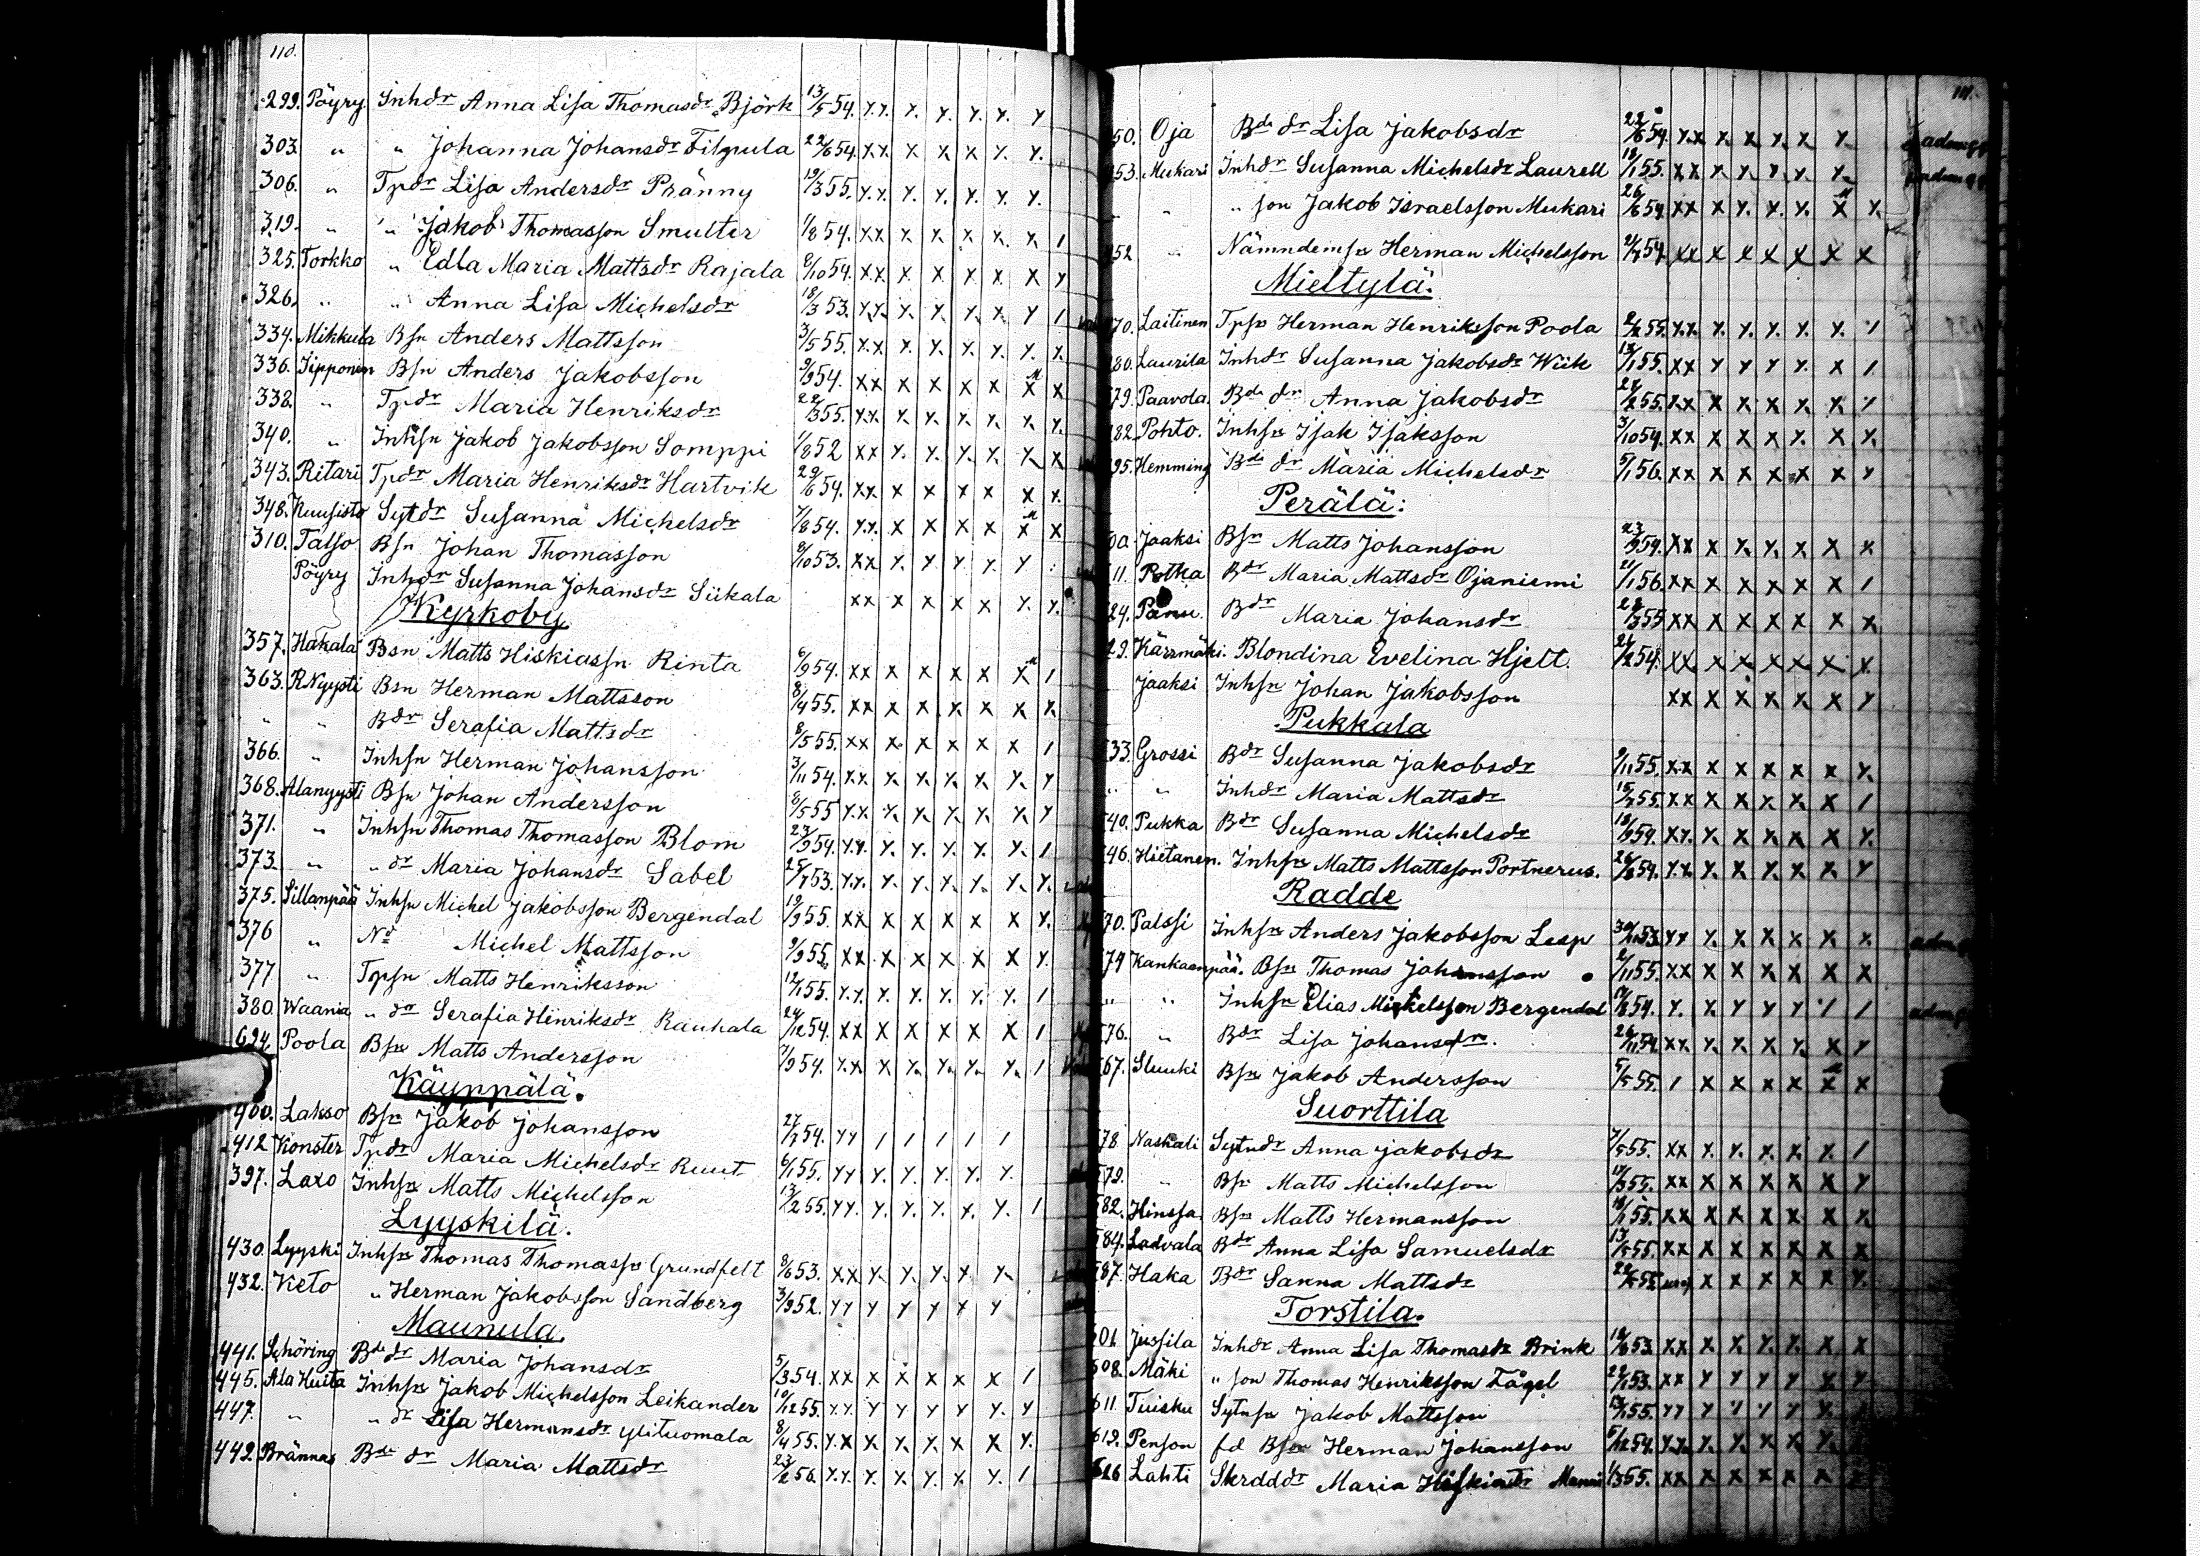 110.
299. Pöyry Inhdr Anna Lisa Thomasdr Björk 13/5 54. x.x. x. x. x. x. x
303. " " Johanna Johansdr Filpula 22/6 54. x x x x x x. x.
306. " Tpdr Lisa Andersdr Pränny 19/3 55. x.x. x. x. x. x. x.
319. " " Jakob Thomasson Smulter 1/8 54. x x x. x. x x. x 1
325. Torkko " Edla Maria Mattsdr Rajala 8/10 54. x x x x x x x x
326. " " Anna Lisa Michelsdr 18/3 53. x x x. x. x. x. x 1
334. Mikkila Bsn Anders Mattsson 3/5 55. x.x x. x. x. x. x. x.
336. Jipponen Bsn Anders Jakobsson 9/9 54. x x x x x x x x
338. " Tpdr Maria Henriksdr 22/3 55. x x x. x. x. x x x.
340. " Inhsn Jakob Jakobsson Somppi 1/8 52 x x x. x. x. x. x x
343. Ritari Tpdr Maria Henriksdr Hartvik 29/6 54. x x. x x x x x x.
348. Kuusisto Sytdr Susanna Michelsdr 7/8 54. x.x. x x x x x x
310. Talso Bsn Johan Thomasson 8/10 53. x x x. x x x. x
Pöyry Inhdr Susanna Johansdr Siikala x x x x x x x. x.
Kyrkoby
357. Hakala Bsn Matts Hiskiassn Rinta 6/9 54. x x x x x x x 1
363. RNyysti Bsn Herman Mattsson 8/4 55. x x x x x x x x.
" " Bdr Serafia Mattsdr 8/5 55. x x x. x x x x 1
366. " Inhsn Herman Johansson 3/11 54. x.x x x. x. x. x. x
368. Alanyysti Bsn Johan Andersson 8/5 55 x.x x. x. x. x. x. x
371. " Inhsn Thomas Thomasson Blom 23/9 54. x.x. x. x. x. x. x. 1
373. " " dr Maria Johansdr Sabel 25/7 53. x.x. x. x. x. x. x. x.
375. Sillanpää Inhsn Michel Jakobsson Bergendal 19/9 55. x x x x x x x x.
376 " No Michel Mattsson 9/9 55. x x x x x x x x.
377 " Tpsn Matts Henriksson 12/1 55. x.x. x. x. x. x. x. 1
380. Waania " dr Serafia Henriksdr Rauhala 24/12 54. x x x x x x x 1
694. Poola Bsn Matts Andersson 7/9 54. x.x x x. x. x. x. 1
Käyppälä.
400. Lakso Bsn Jakob Johansson 27/7 54. x x 1 1 1 1 1
412 Konster Tpdr Maria Michelsdr Ruut 6/1 55. x x x. x. x. x. x.
397. Laxo Inhsn Matts Michelsson 13/2 55. x x. x. x. x. x. x. 1
Lyyskilä.
430. Lyyski Inhsn Thomas Thomassn Grundfelt 8/6 53. x x x. x. x. x. x.
432. Keto " Herman Jakobsson Sandberg 3/9 52. x x x x x x x
Maunula.
441. Schöring Bde dr Maria Johansdr 5/3 54. x x x x x x x 1
445. Ala Huita Inhsn Jakob Michelsson Leikander 10/12 55. x.x. x x x x x. x
447. " " dr Lisa Hermansdr Ylituomala 8/4 55. x.x x x. x. x x x.
449. Brännas Bde dr Maria Mattsdr 23/2 56. x.x. x. x x. x. x. 1
111.
50. Oja Bde dr Lisa Jakobsdr 22/6 54. x.x x. x x. x. x.
53. Mukari Inhdr Susanna Michelsdr Laurell 18/1 55. x x x. x. x. x. x.
" " son Jakob Israelsson Mukari 26/6 54 x x x x. x. x. x x.
52 " Nämndemsn Herman Michelsson 2/7 54. x x x x x x x x
Mieltylä.
70. Laitinen Tpsn Herman Henriksson Poola 2/2 55. x.x. x. x. x. x. x. 1
80. Laurila Inhdr Susanna Jakobsdr Wiik 13/1 55. x x x x x x. x 1
79. Paavola. Bde dr Anna Jakobsdr 27/2 55. x.x x x x x. x. x
82. Pohto. Inhsn Isak Isaksson 3/10 54. x x x x x x. x x.
95. Hemming Bde dr Maria Michelsdr 5/1 56. x x x x x x x x
Perälä:
00. Jaaksi Bsn Matts Johansson 23/9 54. x x x x. x. x x x
11. Potka Bdr Maria Mattsdr Ojaniemi 21/1 56. x x x x x x x 1
24. Bdr Maria Johansdr 28/3 55 x x x x x x x x.
29. Kärrmäki. Blondina Evelina Hjelt. 21/2 54. x x. x x x x x x
Jaaksi Inhsn Johan Jakobsson x x x x x x x x
Pukkala
33. Grossi Bdr Susanna Jakobsdr 9/11 55. x.x x x x x x x.
" " Inhdr Maria Mattsdr 15/7 55. x x x x x. x. x 1
40. Pukka Bdr Susanna Michelsdr 18/9 54. x x. x. x x x x x.
46. Hietanen. Inhsn Matts Mattsson Portnerus. 26/8 54. x.x x. x x. x x x
Radde
70. Palssi Inhsn Anders Jakobsson Lesp 30/11 53 x x x. x x x x. x.
74 Kankaanpää. Bsn Thomas Johansson 2/11 55. x x x x x x x x
" " Inhsn Elias Michelsson Bergendal 17/8 54. x. x. x x x 1 1
576. " Bdr Lisa Johansdr. 26/11 54 x x. x. x. x x. x x
567. Sluuki Bsn Jakob Andersson 5/5 55. 1 x x x x x x
Suorttila
78. Naskali Sytndr Anna Jakobsdr 7/5 55. x x x. x. x. x. x. 1
579. " Bsn Matts Michelsson 17/3 55. x x x x x x x x
582. Hinssa Bsn Matts Hermansson 18/1 55. x x x x x x x x.
584. Ladvala Bdr Anna Lisa Samuelsdr 13/5 55. x x x x x x x x
587. Haka Bdr Sanna Mattsdr 22/5 55 x x x x x x.
Torstila.
601. Jussila Inhdr Anna Lisa Thomasdr Brink 12/6 53. x x x x x. x. x x
608. Mäki " son Thomas Henriksson Fågel 22/1 53. x x x x x x x x
611. Tuisku Sytnsn Jakob Mattsson 13/1 55. x x x 1 1 x x.
619. Penson fd Bsn Herman Johansson 5/12 54. x.x. x. x. x x x.
626 Lahti Skrdddr Maria Hiskiasdr 1/3 55. x x x x x x x x